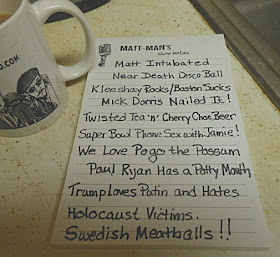 .COM
MATT-MAN'S
Matt Intubated
Near Death Disco Ball
Kleeshay Rocks/Boston Sucks
Mick Dorris Nailed It!
Twisted Tea 'n' Cherry Choc Beer
Super Bowl Phone Sex with Jamie!
We Love Pogo the Possum
Paul Ryan Has a Potty Mouth
Trump Loves Putin and Hates
Holocaust Victims.
Swedish Meatballs!!